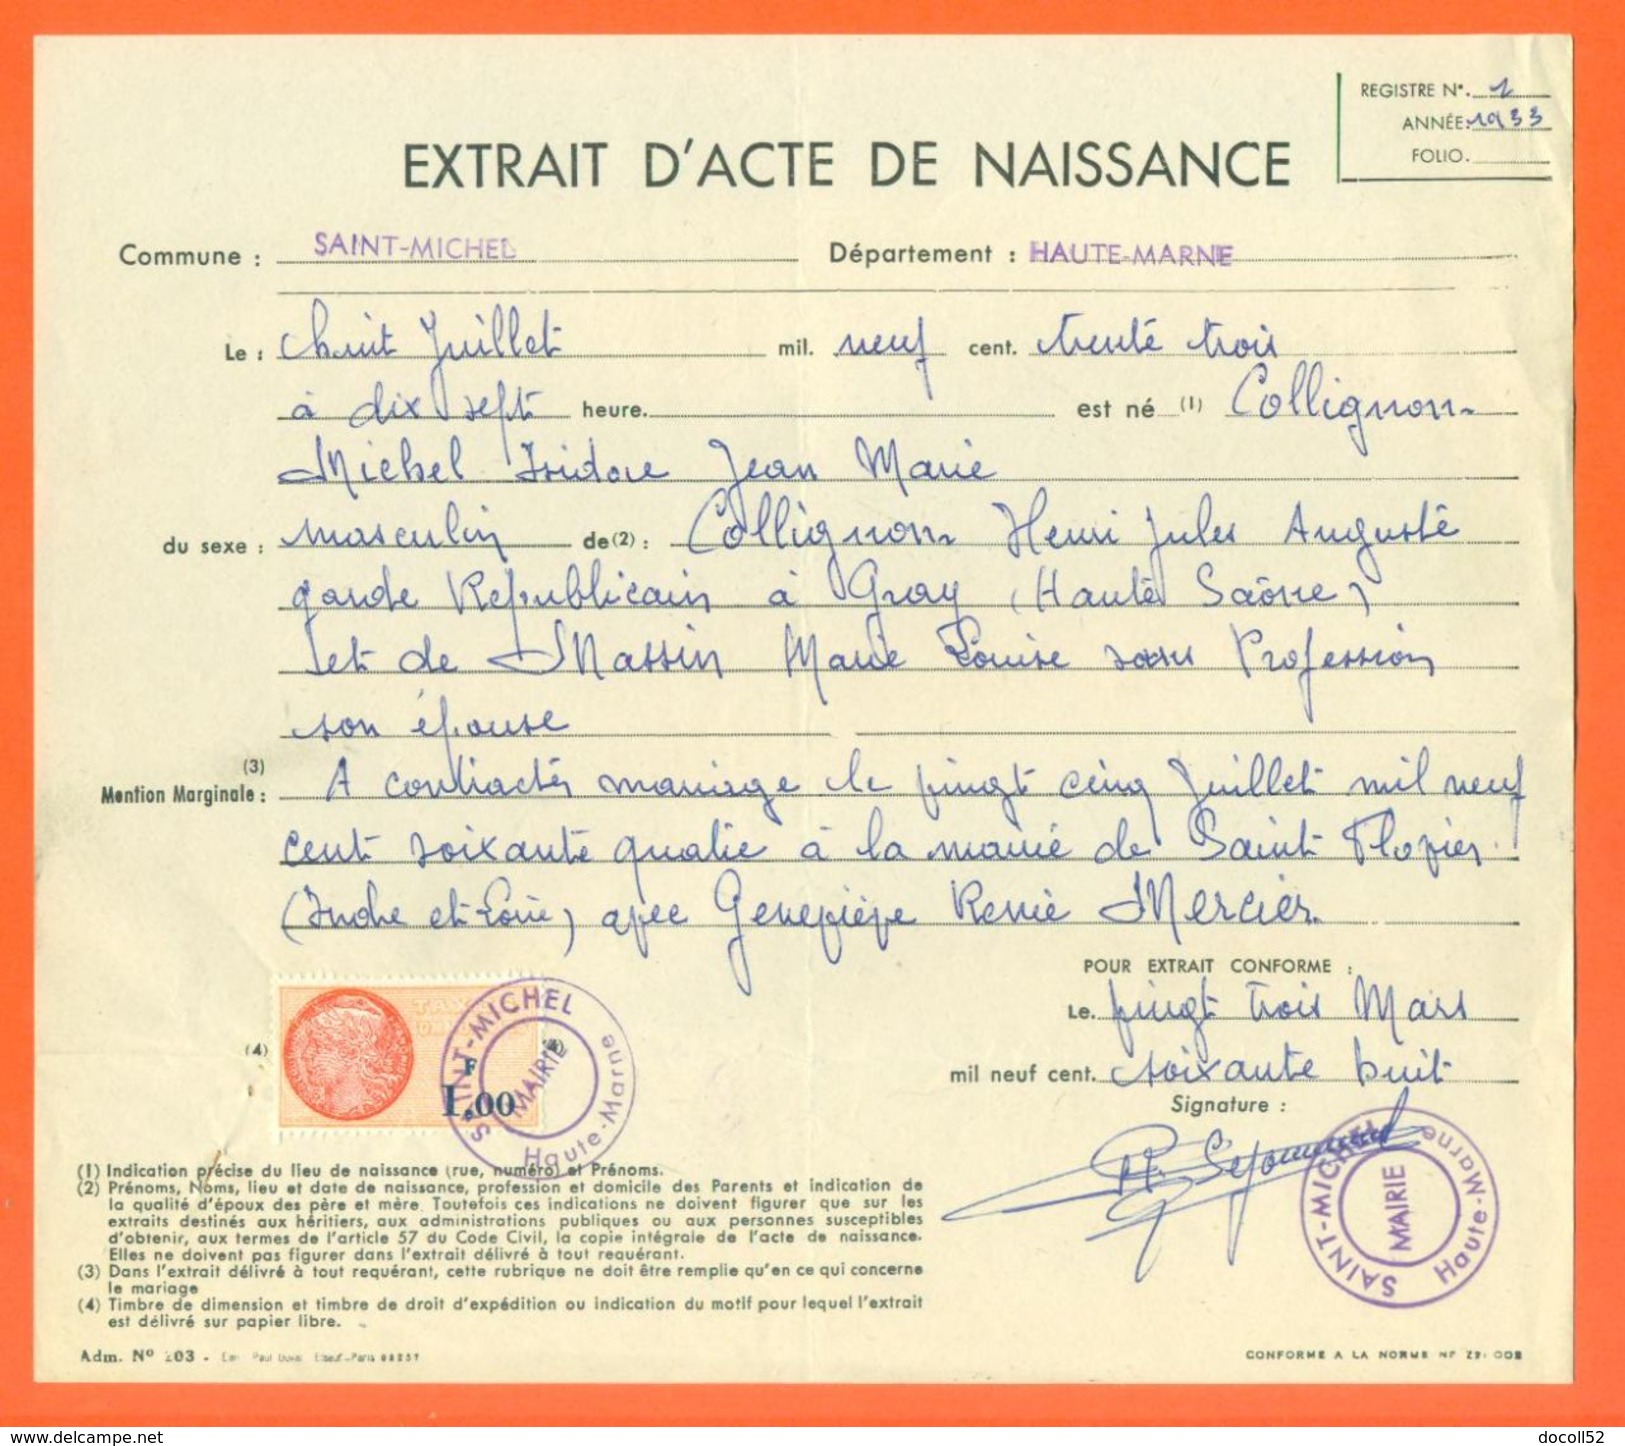 REGISTRE N°. 1
ANNÉE: 1933
FOLIO.
EXTRAIT D'ACTE DE NAISSANCE
Commune : SAINT-MICHEL Département : HAUTE-MARNE
Le : huit Juillet mil. neuf cent. trente trois
à dix sept heure. est né (1) Collignon
Michel Isidore Jean Marie
du sexe : masculin de (2) : Collignon Henri Jules Auguste
garde Républicain à Gray (Haute Saône)
et de Massin Marie Louise sans Profession
son épouse
(3)
Mention Marginale : A contractés mariage le vingt cinq Juillet mil neuf
cent soixante quatre à la mairie de Saint Flovier
(Indre et-Loire) avec Geneviève Renée Mercier
POUR EXTRAIT CONFORME :
Le. vingt trois Mars
mil neuf cent. soixante huit
Signature :
(4)
TAXE
F
1,00
SAINT-MICHEL
MAIRIE
Haute-Marne
SAINT-MICHEL
MAIRIE
Haute-Marne
(1) Indication précise du lieu de naissance (rue, numéro) et Prénoms.
(2) Prénoms, Noms, lieu et date de naissance, profession et domicile des Parents et indication de
la qualité d'époux des père et mère. Toutefois ces indications ne doivent figurer que sur les
extraits destinés aux héritiers, aux administrations publiques ou aux personnes susceptibles
d'obtenir, aux termes de l'article 57 du Code Civil, la copie intégrale de l'acte de naissance.
Elles ne doivent pas figurer dans l'extrait délivré à tout requérant.
(3) Dans l'extrait délivré à tout requérant, cette rubrique ne doit être remplie qu'en ce qui concerne
le mariage
(4) Timbre de dimension et timbre de droit d'expédition ou indication du motif pour lequel l'extrait
est délivré sur papier libre.
Adm. N° 203 - Paul Duval Elbeuf-Paris
CONFORME A LA NORME NF
www.delcampe.net
docoll52